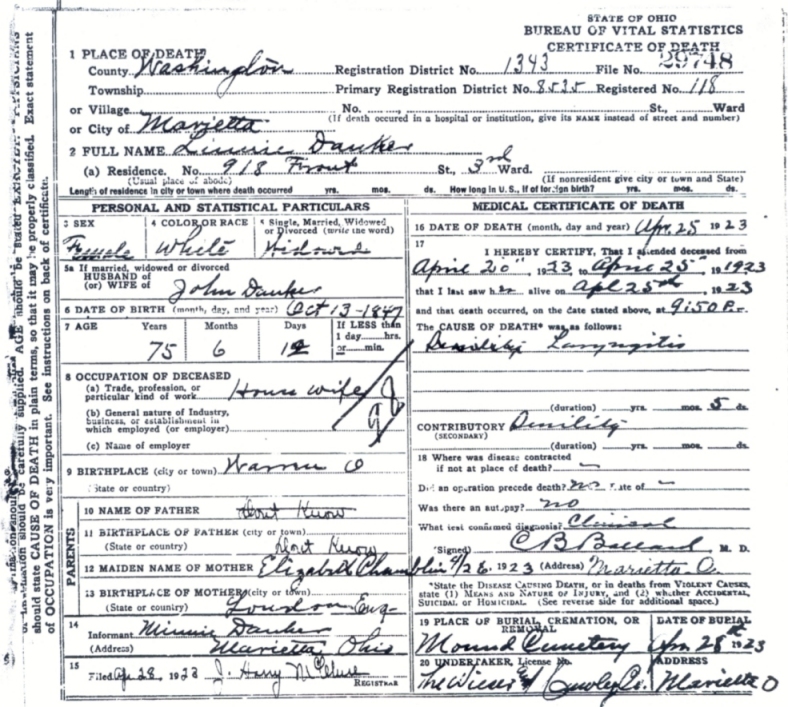 STATE OF OHIO
BUREAU OF VITAL STATISTICS
CERTIFICATE OF DEATH
1 PLACE OF DEATH
County Washington Registration District No. 1343 File No. 29748
Township Primary Registration District No. 8535 Registered No. 118
or Village No. St., Ward
or City of Marietta (If death occured in a hospital or institution, give its NAME instead of street and number)
2 FULL NAME Linnie Danker
(a) Residence. No. 918 Front St., 3rd Ward.
(Usual place of abode) (If nonresident give city or town and State)
Length of residence in city or town where death occurred yrs. mos. ds. How long in U.S., if of foreign birth? yrs. mos. ds.
PERSONAL AND STATISTICAL PARTICULARS
3 SEX 4 COLOR OR RACE 5 Single, Married, Widowed
or Divorced (write the word)
Female White Widowed
5a If married, widowed or divorced
HUSBAND of
(or) WIFE of John Danker
6 DATE OF BIRTH (month, day, and year) Oct 13-1847
7 AGE Years Months Days If LESS than
1 day hrs.
75 6 12 or min.
8 OCCUPATION OF DECEASED
(a) Trade, profession, or
particular kind of work House wife
(b) General nature of Industry,
business, or establishment in
which employed (or employer)
(c) Name of employer
9 BIRTHPLACE (city or town) Warren O
(State or country)
PARENTS
10 NAME OF FATHER Dont Know
11 BIRTHPLACE OF FATHER (city or town)
(State or country) Dont Know
12 MAIDEN NAME OF MOTHER Elizabeth Chamblin
13 BIRTHPLACE OF MOTHER (city or town)
(State or country) London Eng-
14
Informant Minnie Danker
(Address) Marietta Ohio
15
Filed Apr 28, 1923 J. Harry McClure
REGISTRAR
MEDICAL CERTIFICATE OF DEATH
16 DATE OF DEATH (month, day and year) Apr. 25 1923
17
I HEREBY CERTIFY, That I attended deceased from
April 20", 1923 to April 25", 1923
that I last saw her alive on Apl 25th, 1923
and that death occurred, on the date stated above, at 9:50 P.
The CAUSE OF DEATH* was as follows:
Laryngitis
(duration) yrs. mos. 5 ds.
CONTRIBUTORY Senility
(SECONDARY)
(duration) yrs. mos. ds.
18 Where was disease contracted
if not at place of death? –
Did an operation precede death? no Date of –
Was there an autopsy? no
What test confirmed diagnosis? Clinical
(Signed) C B Ballard M. D.
4/26, 1923 (Address) Marietta O.
*State the DISEASE CAUSING DEATH, or in deaths from VIOLENT CAUSES,
state (1) MEANS AND NATURE OF INJURY, and (2) whether ACCIDENTAL,
SUICIDAL or HOMICIDAL. (See reverse side for additional space.)
19 PLACE OF BURIAL, CREMATION, OR
REMOVAL DATE OF BURIAL
Mound Cemetery Apr. 28th 1923
20 UNDERTAKER, License No. ADDRESS
The Wieser & Cawley Co. Marietta O
should be carefully supplied. AGE should be stated EXACTLY. PHYSICIANS
should state CAUSE OF DEATH in plain terms, so that it may be properly classified. Exact statement
of OCCUPATION is very important. See instructions on back of certificate.